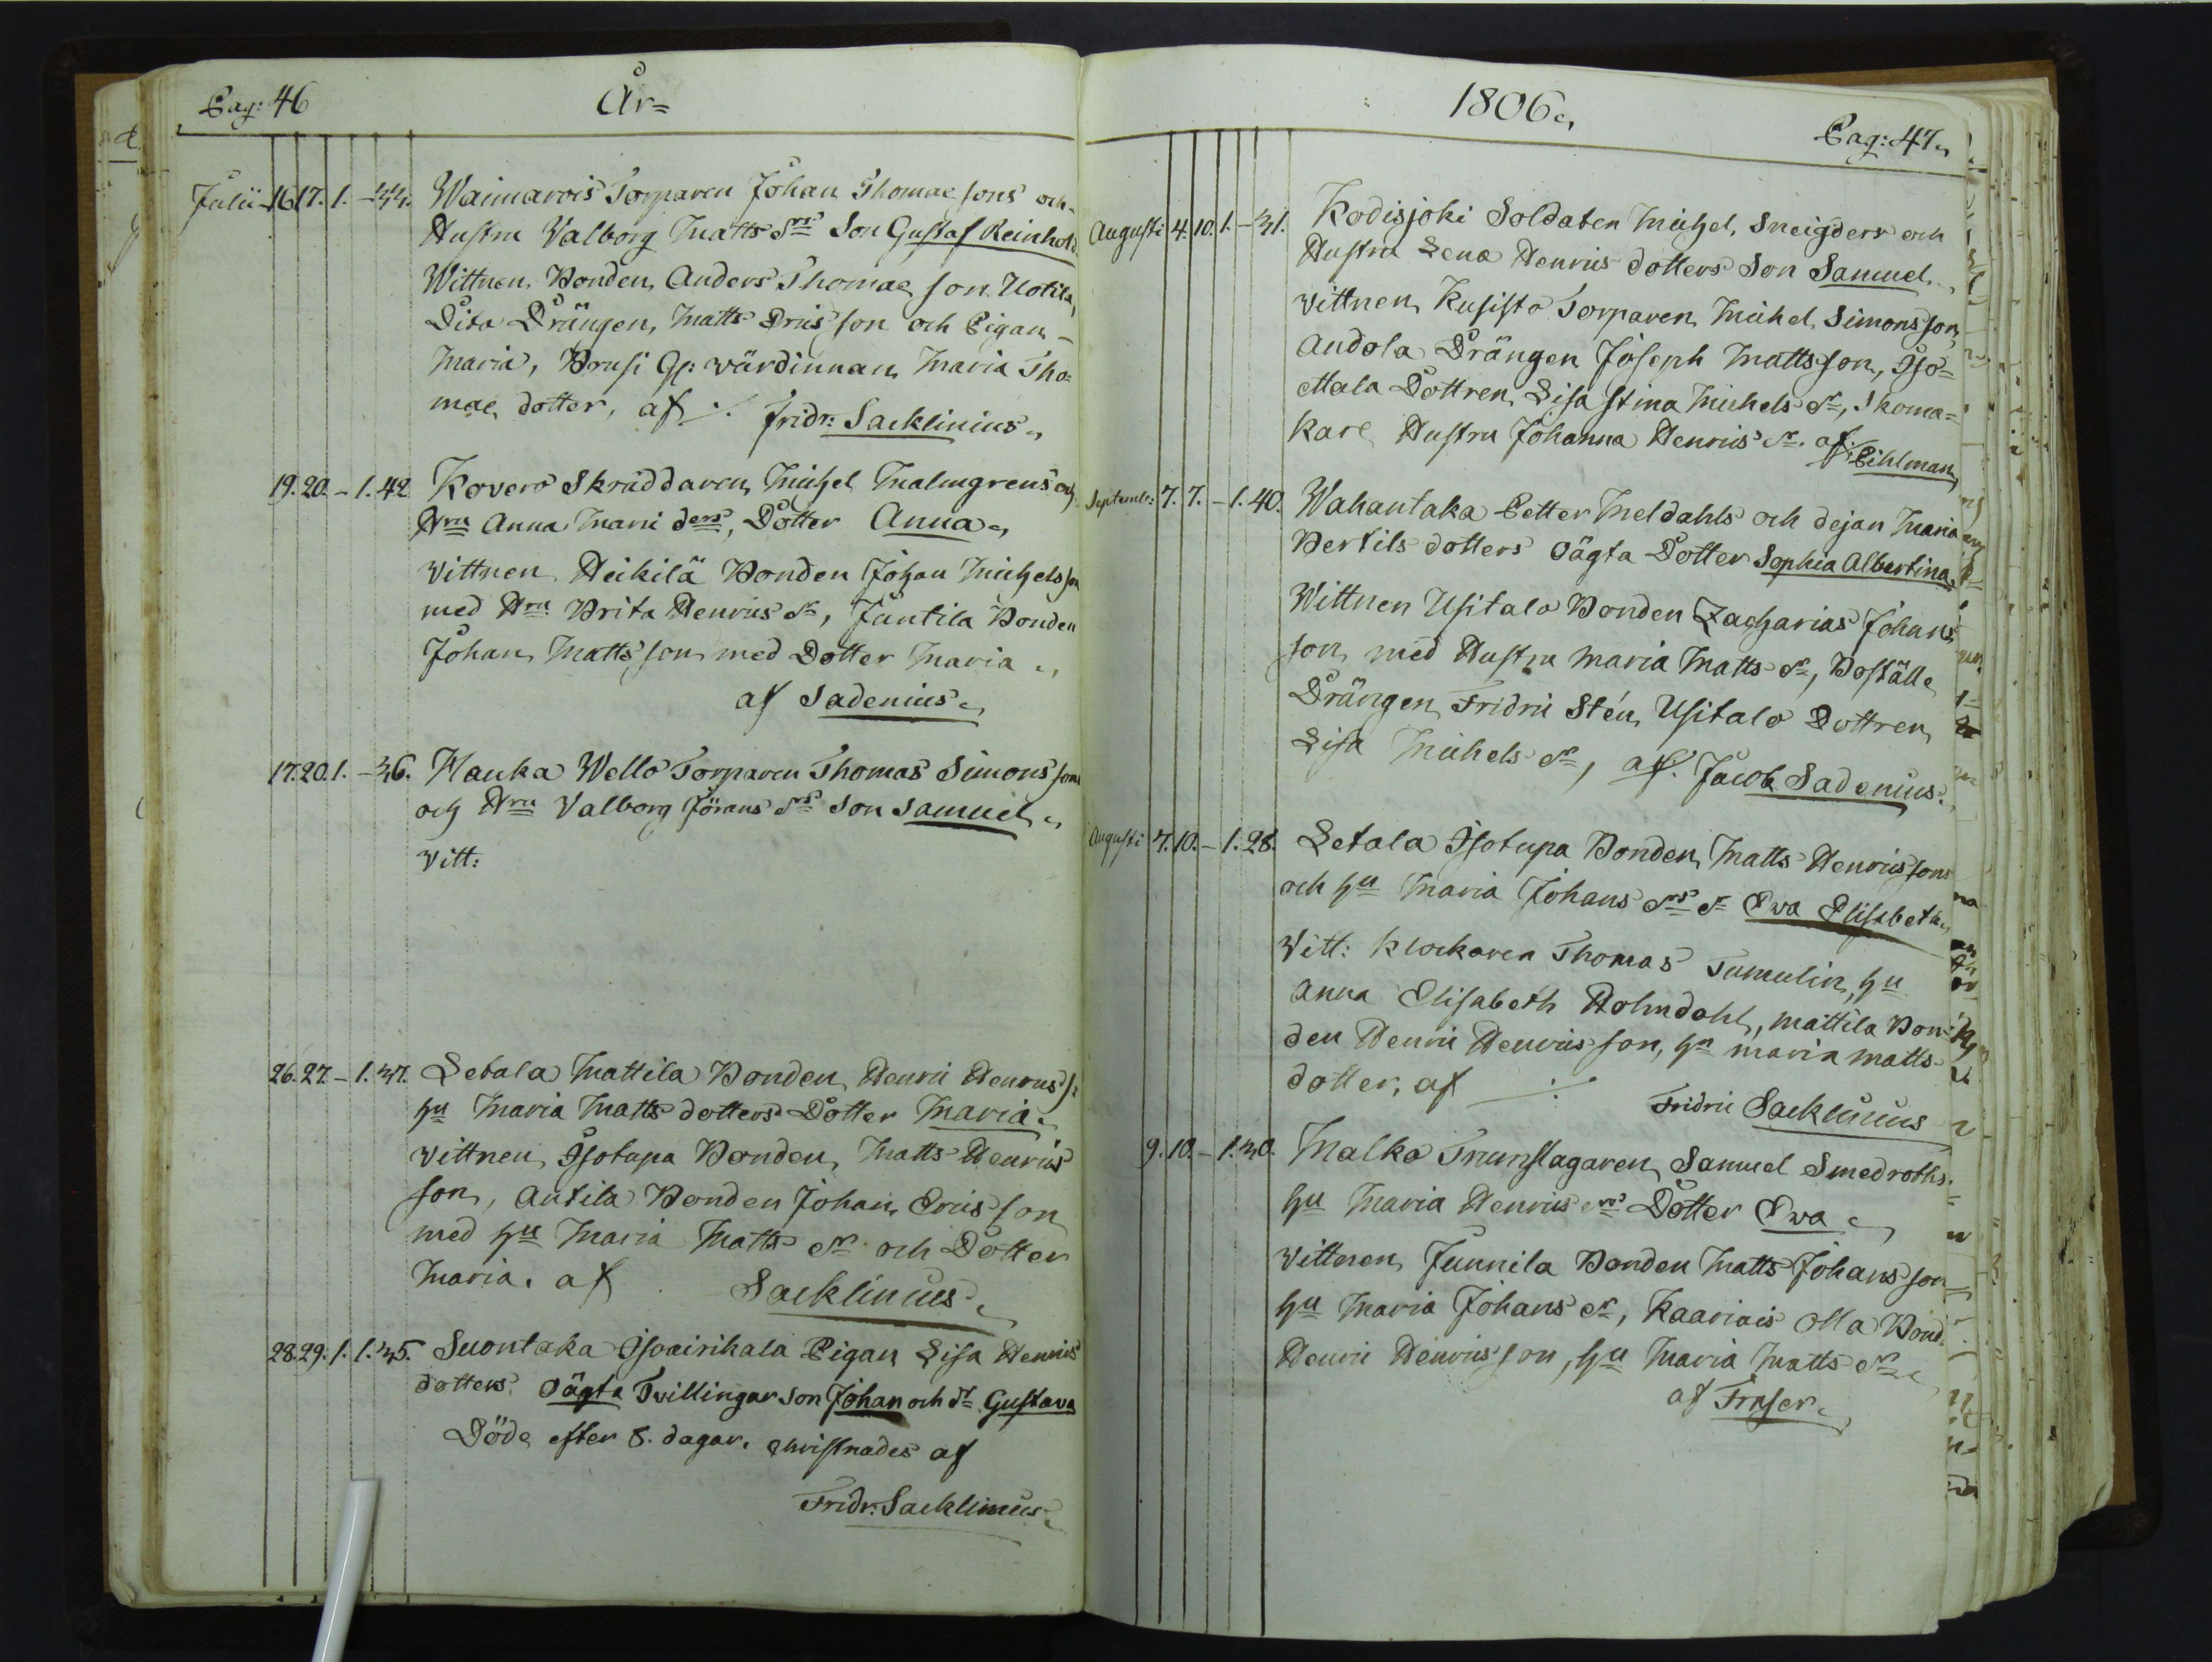 Pag: 46
År=
Julii 16 17. 1. - 44. Waimarois Torparen Johan Thomae sons och
Hustru Valborg Matts drs Son Gustaf Reinhold
Wittnen, Bonden, Anders Thomae son Uotila,
Dito Drängen, Matts Ericsson och Pigan
Maria, Brusi Gl: wärdinnan Maria Tho=
mae dotter, af ./. Fridr: Sacklinius.
19. 20. - 1. 42. Kovero Skräddaren, Michel Malmgrens och
Hru Anna Marie ders, Dotter Anna.
Vittnen Heikilä Bonden Johan Michelsson
med Hru Brita Henrics dr, Juntila Bonden
Johan Matts son med Dotter Maria.,
af Sadenius.
17. 20. 1. - 36. Hauka Wello Torparen Thomas Simons sons
och Hru Valborg Jörans drs Son Samuel.
Vitt:
26. 27. - 1. 37. Letala Mattila Bonden Henric Henrics s:
hu Maria Matts dotters Dotter Maria.
Vittnen, Isotupa Bonden, Matts Henrics
son, Antila Bonden Johan Erics son
med hu Maria Matts dr och Dotter
Maria. af Sacklinius.
28. 29. 1. 1. 35. Suontaka Isoairikala Pigan Lisa Henrics
dotters Oägta Tvillingar Son Johan och dr Gustava
Döde efter 8. dagar. Christnades af
Fridr: Sacklinius.
1806.
Pag: 47.
Augusti 4. 10. 1. - 31. Kodisjoki Soldaten Michel, Sneigders och
Hustru Lena Henrics dotters Son Samuel.
Vittnen, Kusisto Torparen, Michel Simonsson,
Andola Drängen Joseph Mattsson, Iso=
Mala Dottren, Lisa Stina Michels dr, Skoma=
kare Hustru Johanna Henrics dr. af. Pihlman
Septemb: 7. 7. - 1. 40. Wahantaka Petter Meldahls och dejan Maria
Bertils dotters Oägta Dotter Sophia Albertina.
Wittnen Usitalo Bonden Zacharias Johans
son, med Hustru Maria Matts dr, Boställe
Drängen, Fridric Stén, Usitalo Dottren
Lisa Michels dr, af. Jacob Sadenius.
Augusti 7. 10. - 1. 28. Letala Isotupa Bonden, Matts Henrics sons
och hu Maria Johans drs dr Ewa Elisabeth.
Vitt: Klockaren Thomas Tumulin, hu
Anna Elisabeth Holmdahl, Mattila Bon=
den Henric Henrics son, hu Maria Matts
dotter, af ./. Fridric Sacklinius
9. 10. - 1. 30. Malko Trumslagaren, Samuel Smedroths.
hu Maria Henrics drs Dotter Ewa.
Vittnen, Junnila Bonden Matts Johans son
hu Maria Johans dr, Kaariais Olla Bond.
Henric Henrics son, hu Maria Matts dr.
af Fraser.